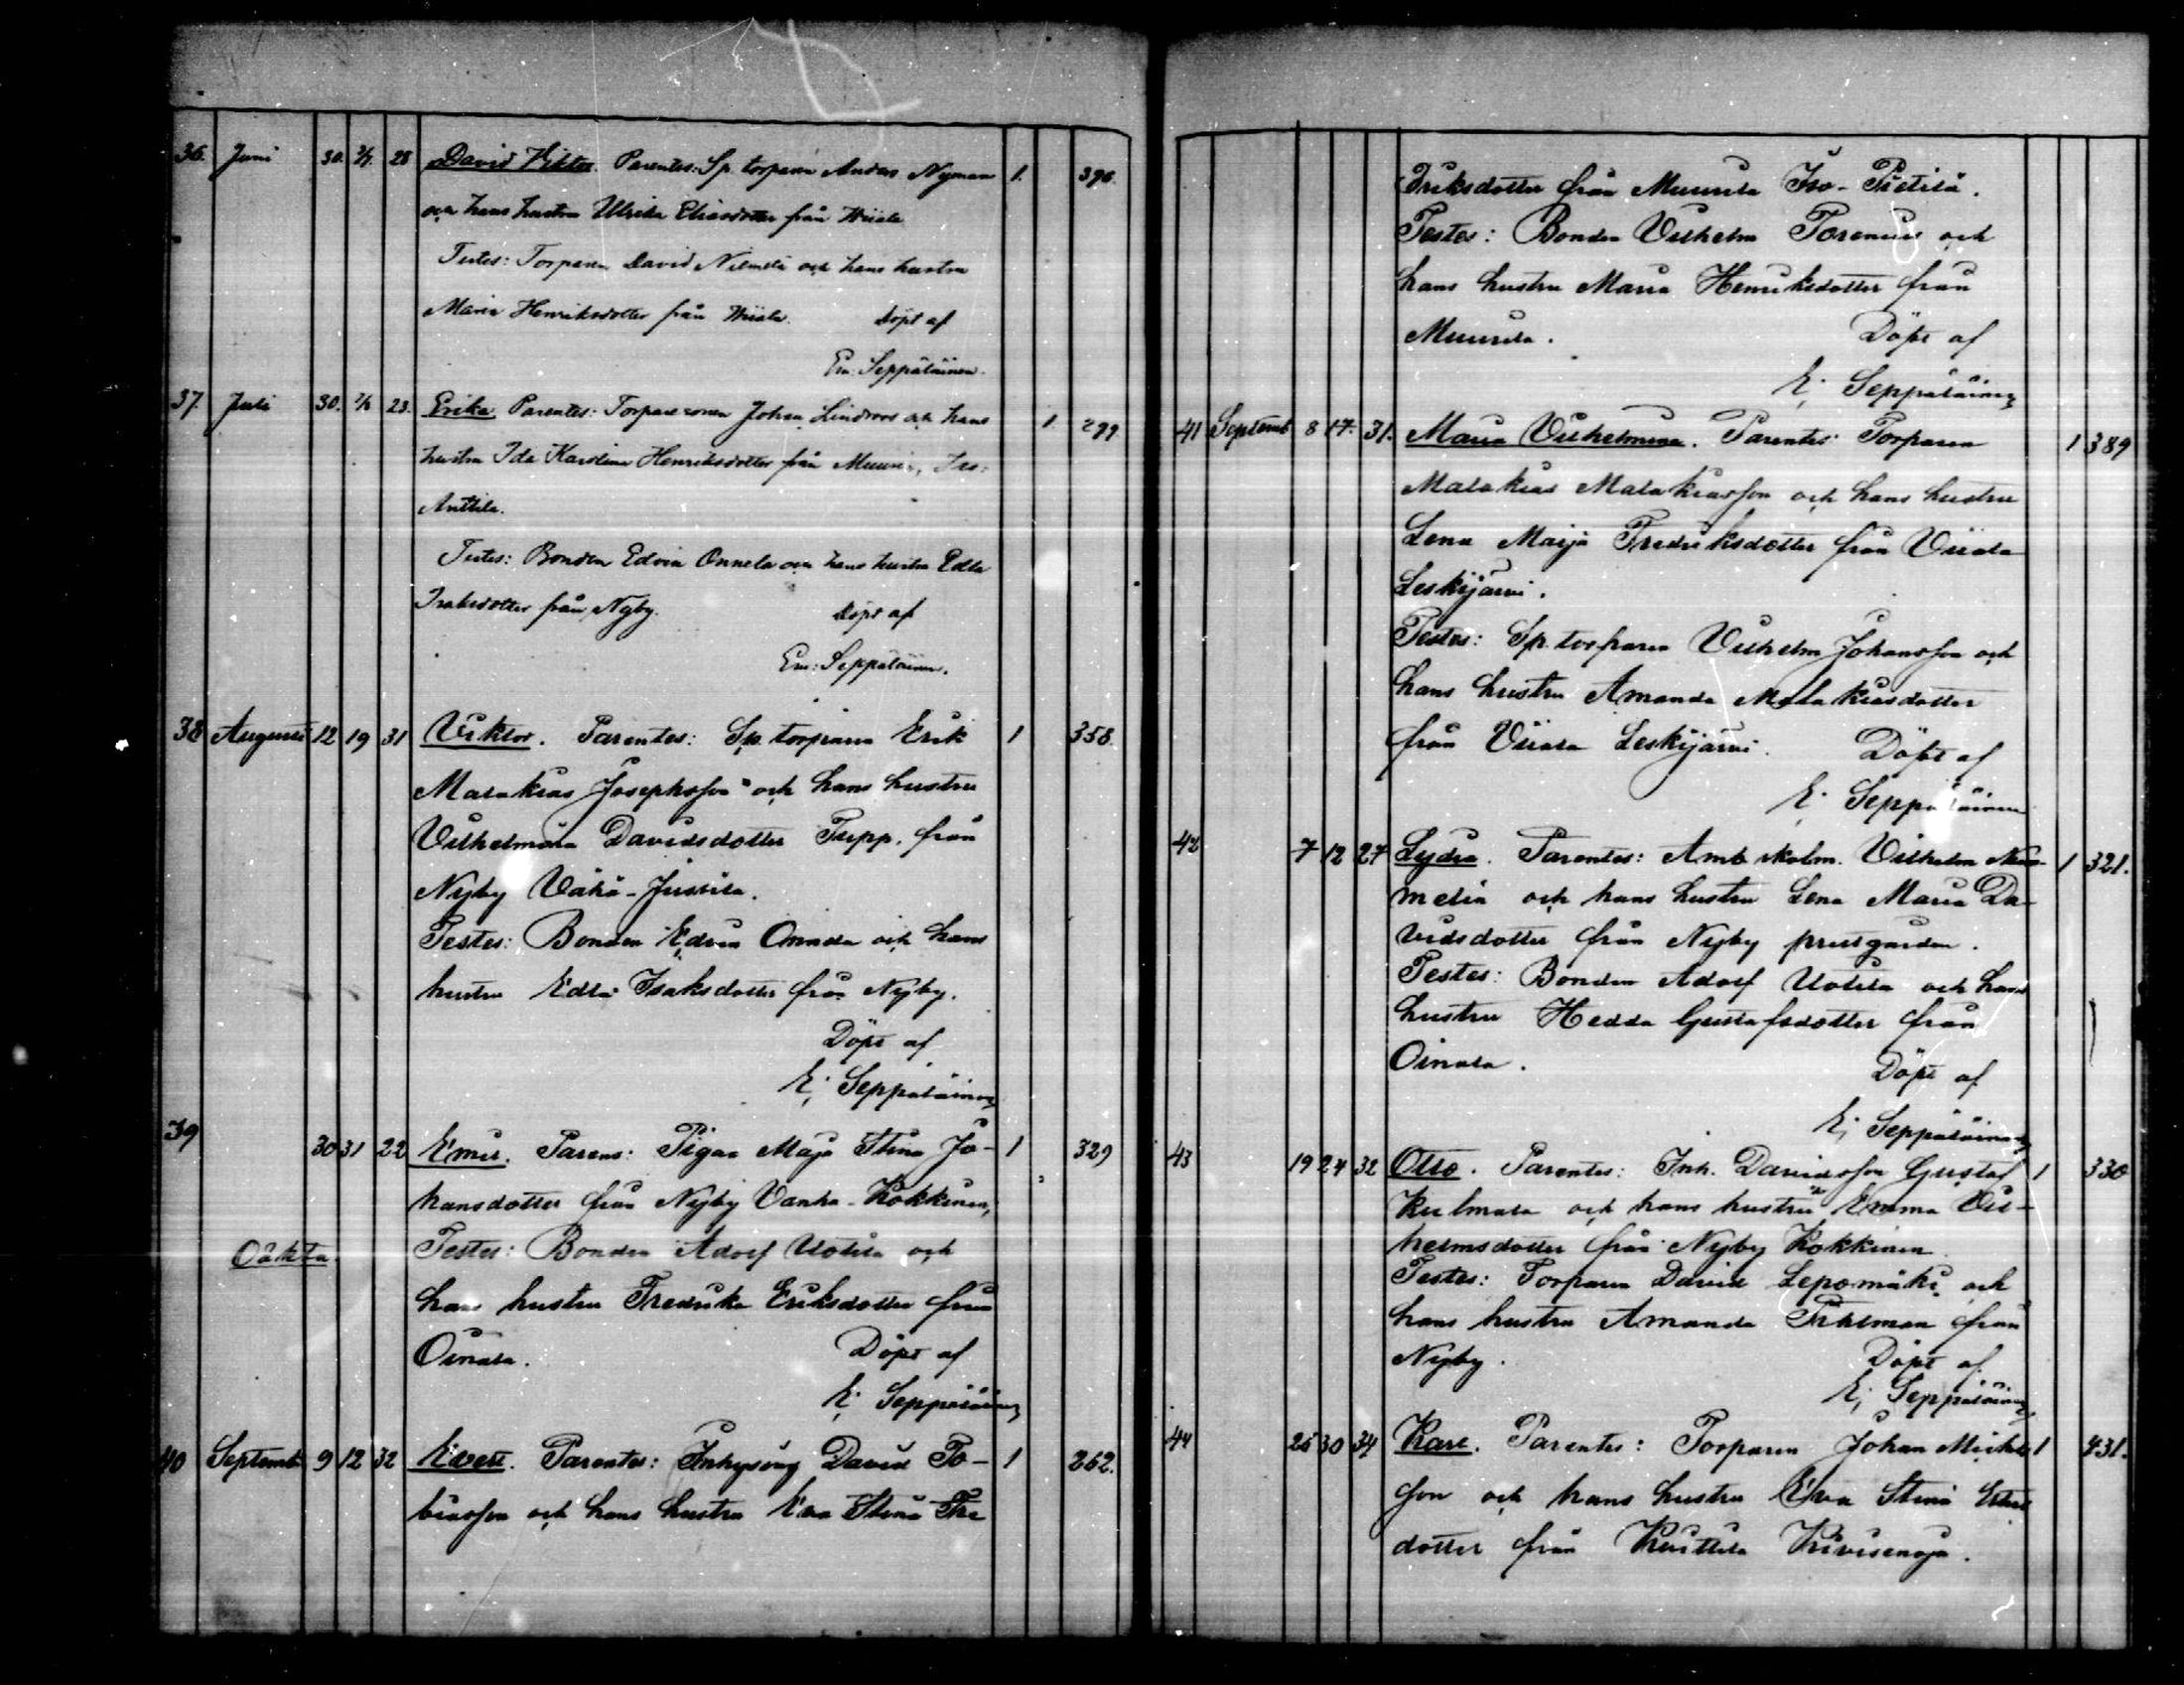 36. Juni 30. 2/7. 28 David Viktor. Parentes: Sp. torparen Anders Nyman 1. 396.
och hans hustru Ulrika Eliasdotter från Wiiala
Testes: Torparen David Niemelä och hans hustru
Maria Henriksdotter från Wiiala. Döpt af
Em. Seppäläinen.
37. Juli 30. 23. Erika. Parentes: Torparesonen Johan Lindroos och hans 1 299
hustru Ida Karolina Henriksdotter från Iso-
Anttila.
Testes: Bonden Edvin Onnela och hans hustru Edla
Isaksdotter från Nyby. Döpt af
Em: Seppäläinen.
38 Augusti 12 19 31 Viktor. Parentes: Sp. torparen Erik 1 358.
Malakias Josephsson och hans hustru
Vilhelmina Davidsdotter från
Nyby Vähä-Jussila.
Testes: Bonden Edvin Onnela och hans
hustru Edla Isaksdotter från Nyby.
Döpt af
E. Seppäläinen
39 30 31 22 Emil. Parens: Pigan Maja Stina Jo- 1 329
hansdotter från Nyby Vanha-Kokkinen,
Oäkta. Testes: Bonden Adolf Uotila och
hans hustru Fredrika Eriksdotter från
Oinala. Döpt af
E. Seppäläinen
40 Septemb 9 12 32 Evert. Parentes: Inhysing David To- 1 262.
biasson och hans hustru Eva Stina Fre
driksdotter från Muurila Iso-Pietilä.
Testes: Bonden Vilhelm och
hans hustru Maria Henriksdotter från
Muurila. Döpt af
E. Seppäläinen
41 Septemb 8 17. 31. Maria Vilhelmina. Parentes: Torparen 1 389
Malakias Malakiasson och hans hustru
Lena Maija Fredriksdotter från Viiala
Leskijärvi.
Testes: Sp. torparen Vilhelm Johansson och
hans hustru Amanda Malakiasdotter
från Viiala Leskijärvi. Döpt af
E. Seppäläinen
42 7 12 27 Lydia. Parentes: Amb. skolm. Vilhelm Nie- 1 321.
melin och hans hustru Lena Maria Da-
vidsdotter från Nyby prestgården.
Testes: Bonden Adolf Uotila och hans
hustru Hedda Gustafsdotter från
Oinala. Döpt af
E. Seppäläinen
43 19 24 32 Otto. Parentes: Inh. Davidsson Gustaf 1 330
Kulmala och hans hustru Emma Vil-
helmsdotter från Nyby Kokkinen.
Testes: Torparen David Lepomäki och
hans hustru Amanda från
Nyby. Döpt af
E. Seppäläinen
44 25 30 34 Karl. Parentes: Torparen Johan Michels 1 431.
son och hans hustru Eva Stina
dotter från Kurttila Kivisenoja.